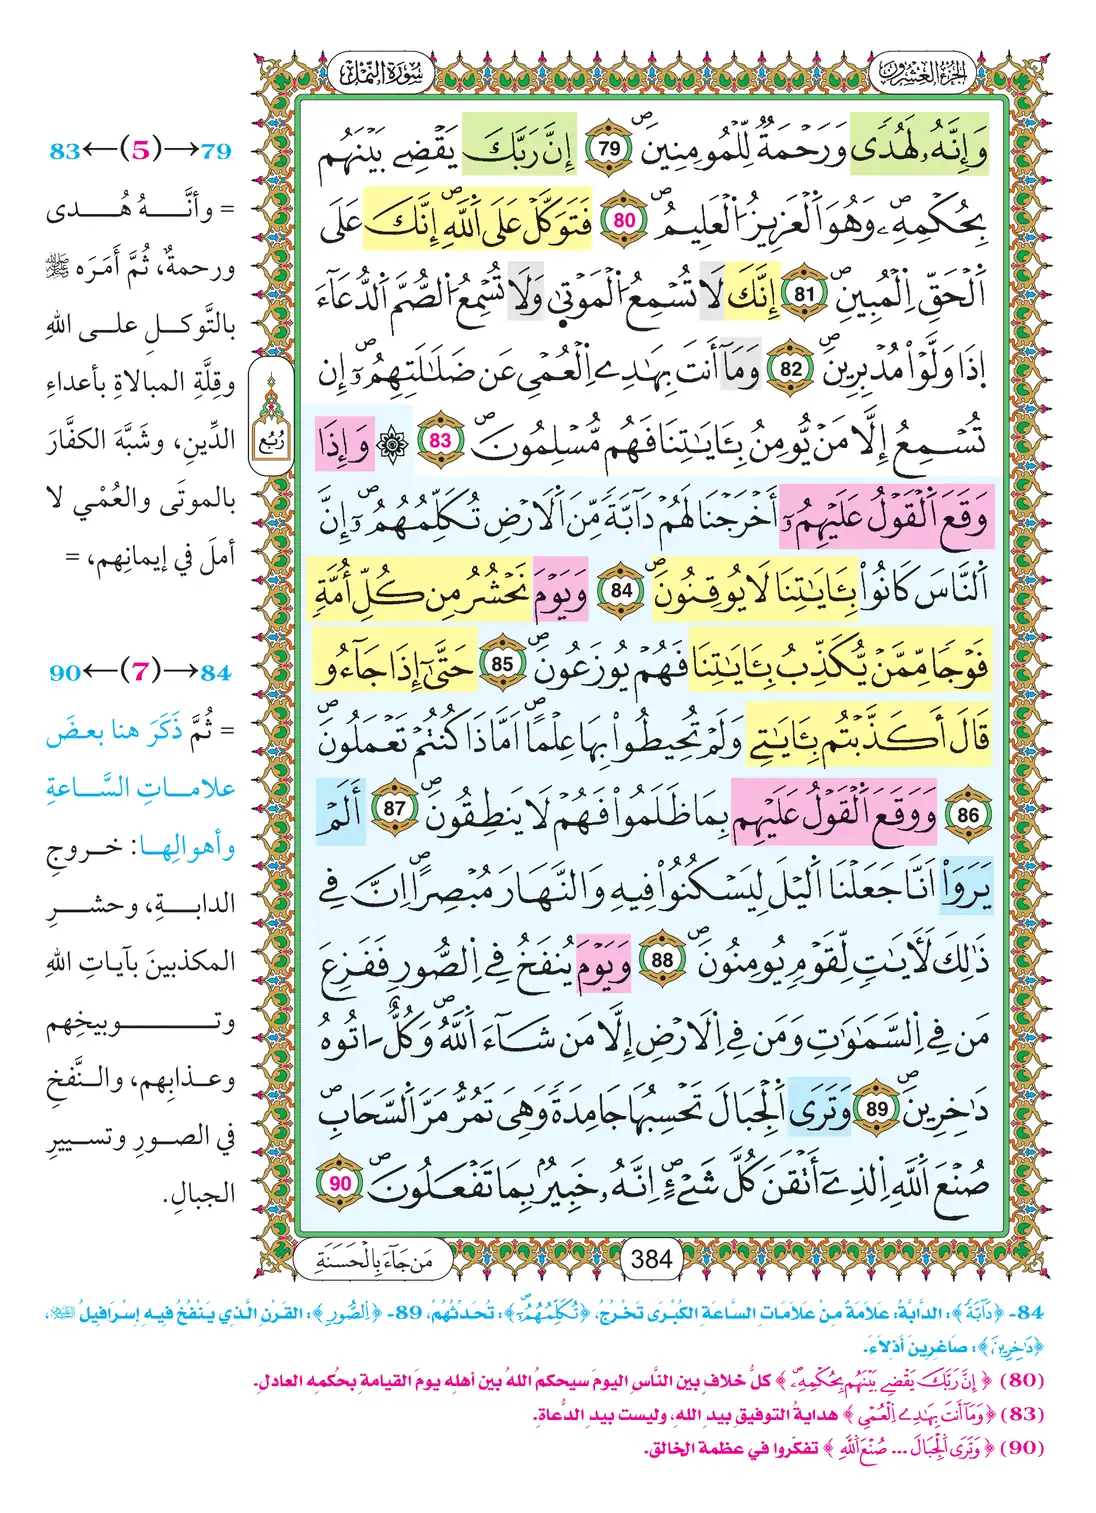 الجزء العشرون
سورة النمل
وَإِنَّهُۥ لَهُدٗى وَرَحۡمَةٞ لِّلۡمُومِنِينَۖ 79 إِنَّ رَبَّكَ يَقۡضِے بَيۡنَهُم
بِحُكۡمِهِۦۖ وَهُوَ اَ۬لۡعَزِيزُ اُ۬لۡعَلِيمُۖ 80 فَتَوَكَّلۡ عَلَى اَ۬للَّهِۖ إِنَّكَ عَلَى
اَ۬لۡحَقِّ اِ۬لۡمُبِينِۖ 81 إِنَّكَ لَا تُسۡمِعُ اُ۬لۡمَوۡتٰى وَلَا تُسۡمِعُ اُ۬لصُّمَّ اَ۬لدُّعَآءَ
اِذَا وَلَّوۡاْ مُدۡبِرِينَۖ 82 وَمَآ أَنتَ بِهَٰدِے اِ۬لۡعُمۡيِ عَن ضَلَٰلَتِهِمُۥٓۖ إِن
تُسۡمِعُ إِلَّا مَنۡ يُّومِنُ بِـَٔايَٰتِنَا فَهُم مُّسۡلِمُونَۖ 83 ۞ وَإِذَا
وَقَعَ اَ۬لۡقَوۡلُ عَلَيۡهِمُۥٓ أَخۡرَجۡنَا لَهُمۡ دَآبَّةٗ مِّنَ اَ۬لَارۡضِ تُكَلِّمُهُمُۥٓۖ إِنَّ
اَ۬لنَّاسَ كَانُواْ بِـَٔايَٰتِنَا لَا يُوقِنُونَۖ 84 وَيَوۡمَ نَحۡشُرُ مِن كُلِّ أُمَّةٖ
فَوۡجٗا مِّمَّنۡ يُّكَذِّبُ بِـَٔايَٰتِنَا فَهُمۡ يُوزَعُونَۖ 85 حَتَّىٰٓ إِذَا جَآءُو
قَالَ أَكَذَّبۡتُم بِـَٔايَٰتِے وَلَمۡ تُحِيطُواْ بِهَا عِلۡماًۖ اَمَّاذَا كُنتُمۡ تَعۡمَلُونَۖ
86 وَوَقَعَ اَ۬لۡقَوۡلُ عَلَيۡهِم بِمَا ظَلَمُواْ فَهُمۡ لَا يَنطِقُونَۖ 87 أَلَمۡ
يَرَوَاْ اَنَّا جَعَلۡنَا اَ۬ليۡلَ لِيَسۡكُنُواْ فِيهِ وَالنَّهَارَ مُبۡصِراًۖ اِنَّ فِے
ذَٰلِكَ لَأٓيَٰتٖ لِّقَوۡمٖ يُومِنُونَۖ 88 وَيَوۡمَ يُنفَخُ فِے اِ۬لصُّورِ فَفَزِعَ
مَن فِے اِ۬لسَّمَٰوَٰتِ وَمَن فِے اِ۬لَارۡضِ إِلَّا مَن شَآءَ اَ۬للَّهُۖ وَكُلٌّ اٰتُوهُ
دَٰخِرِينَۖ 89 وَتَرَى اَ۬لۡجِبَالَ تَحۡسِبُهَا جَامِدَةٗ وَهِيَ تَمُرُّ مَرَّ اَ۬لسَّحَابِۖ
صُنۡعَ اَ۬للَّهِ اِ۬لذِےٓ أَتۡقَنَ كُلَّ شَےۡءٍۖ اِنَّهُۥ خَبِيرُۢ بِمَا تَفۡعَلُونَۖ 90
رُبُع
83←(5)→79
= وأنَّهُ هُدى
ورحمةٌ، ثُمَّ أَمَرَه ﷺ
بالتَّوكلِ على اللهِ
وقِلَّةِ المبالاةِ بأعداءِ
الدِّينِ، وشَبَّهَ الكفَّارَ
بالموتَى والعُمْي لا
أملَ في إيمانِهم، =
90←(7)→84
= ثُمَّ ذَكَرَ هنا بعضَ
علاماتِ السَّاعةِ
وأهوالِها: خروجِ
الدابةِ، وحشرِ
المكذبينَ بآياتِ اللهِ
وتوبيخِهم
وعذابِهم، والنَّفخِ
في الصورِ وتسييرِ
الجبالِ.
384
مَن جَآءَ بِالۡحَسَنَةِ
84- ﴿دَآبَّةٗ﴾: الدَّابَّةُ: عَلَامَةٌ مِنْ عَلَامَاتِ السَّاعَةِ الكُبْرَى تَخْرُجُ، ﴿تُكَلِّمُهُمُۥٓۖ﴾: تُحَدِّثُهُمْ، 89- ﴿اِ۬لصُّورِ﴾: القَرْنِ الَّذِي يَنْفُخُ فِيهِ إِسْرَافِيلُ عليه السلام،
﴿دَٰخِرِينَ﴾: صَاغِرِينَ أَذِلَّاءَ.
(80) ﴿إِنَّ رَبَّكَ يَقۡضِے بَيۡنَهُم بِحُكۡمِهِۦۖ﴾ كلُّ خلافٍ بين النَّاسِ اليومَ سيحكمُ اللهُ بين أهلِه يومَ القيامةِ بحُكمِه العادلِ.
(83) ﴿وَمَآ أَنتَ بِهَٰدِے اِ۬لۡعُمۡيِ﴾ هدايةُ التوفيقِ بيدِ اللهِ، وليست بيدِ الدُّعاةِ.
(90) ﴿وَتَرَى اَ۬لۡجِبَالَ ... صُنۡعَ اَ۬للَّهِ﴾ تفكّروا في عظمة الخالق.